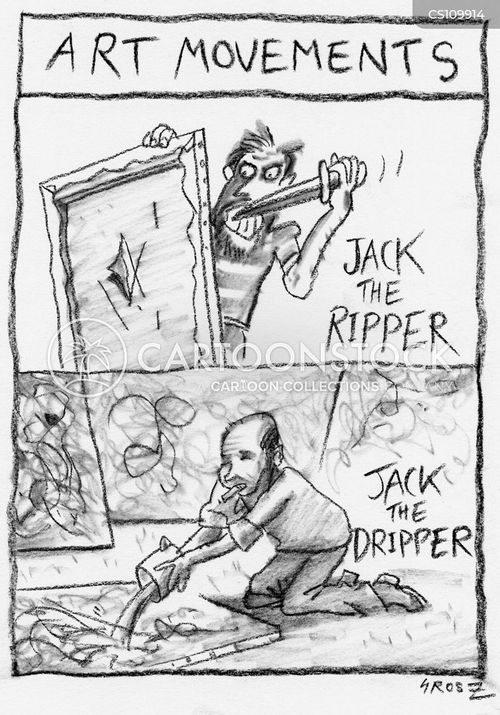 CS109914
ART MOVEMENTS
JACK
THE
RIPPER
CARTOONSTOCK
CARTOON COLLECTIONS
JACK
THE
DRIPPER
GROSZ